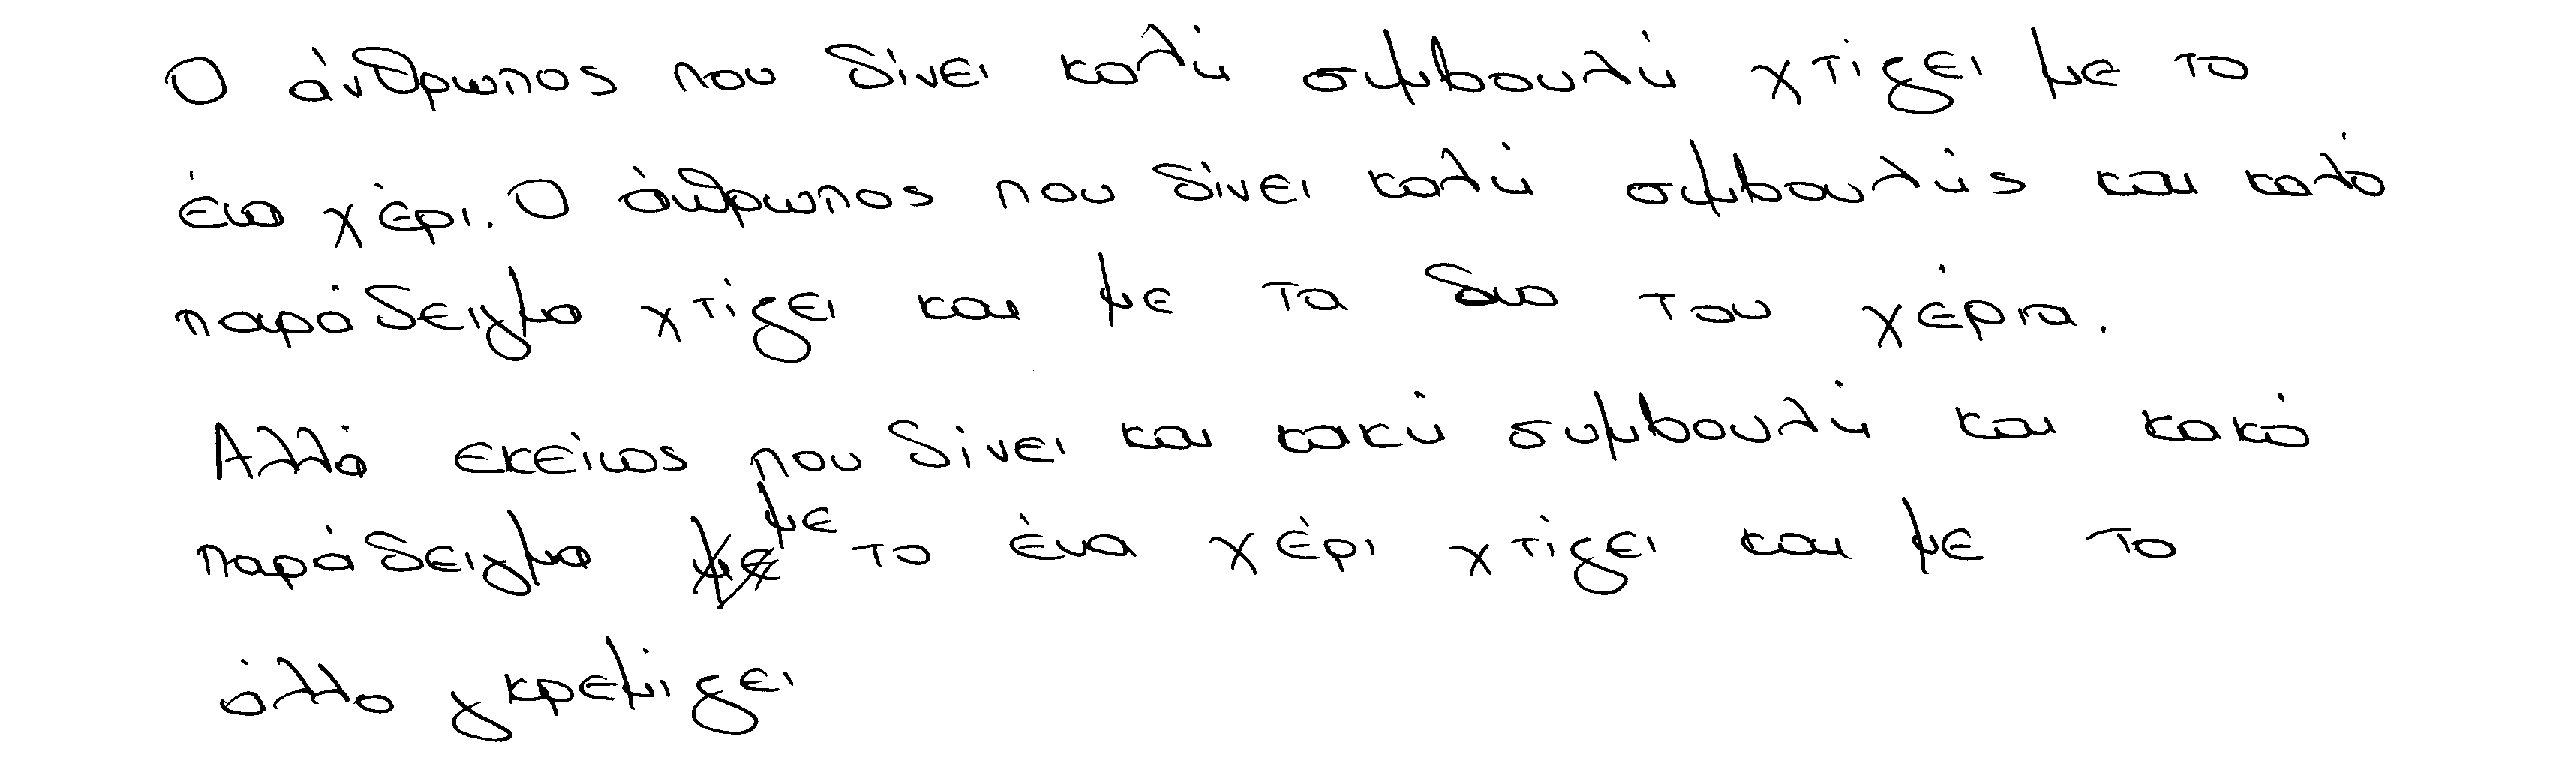 Ο άνθρωπος που δίνει καλή συμβουλή χτίζει με το
ένα χέρι. Ο άνθρωπος που δίνει καλή συμβουλής και καλό
παράδειγμα χτίζει και με τα δυο του χέρια.
Αλλά εκείνος που δίνει και κακή συμβουλή και κακό
παράδειγμα με το ένα χέρι χτίζει και με το
άλλο γκρεμίζει